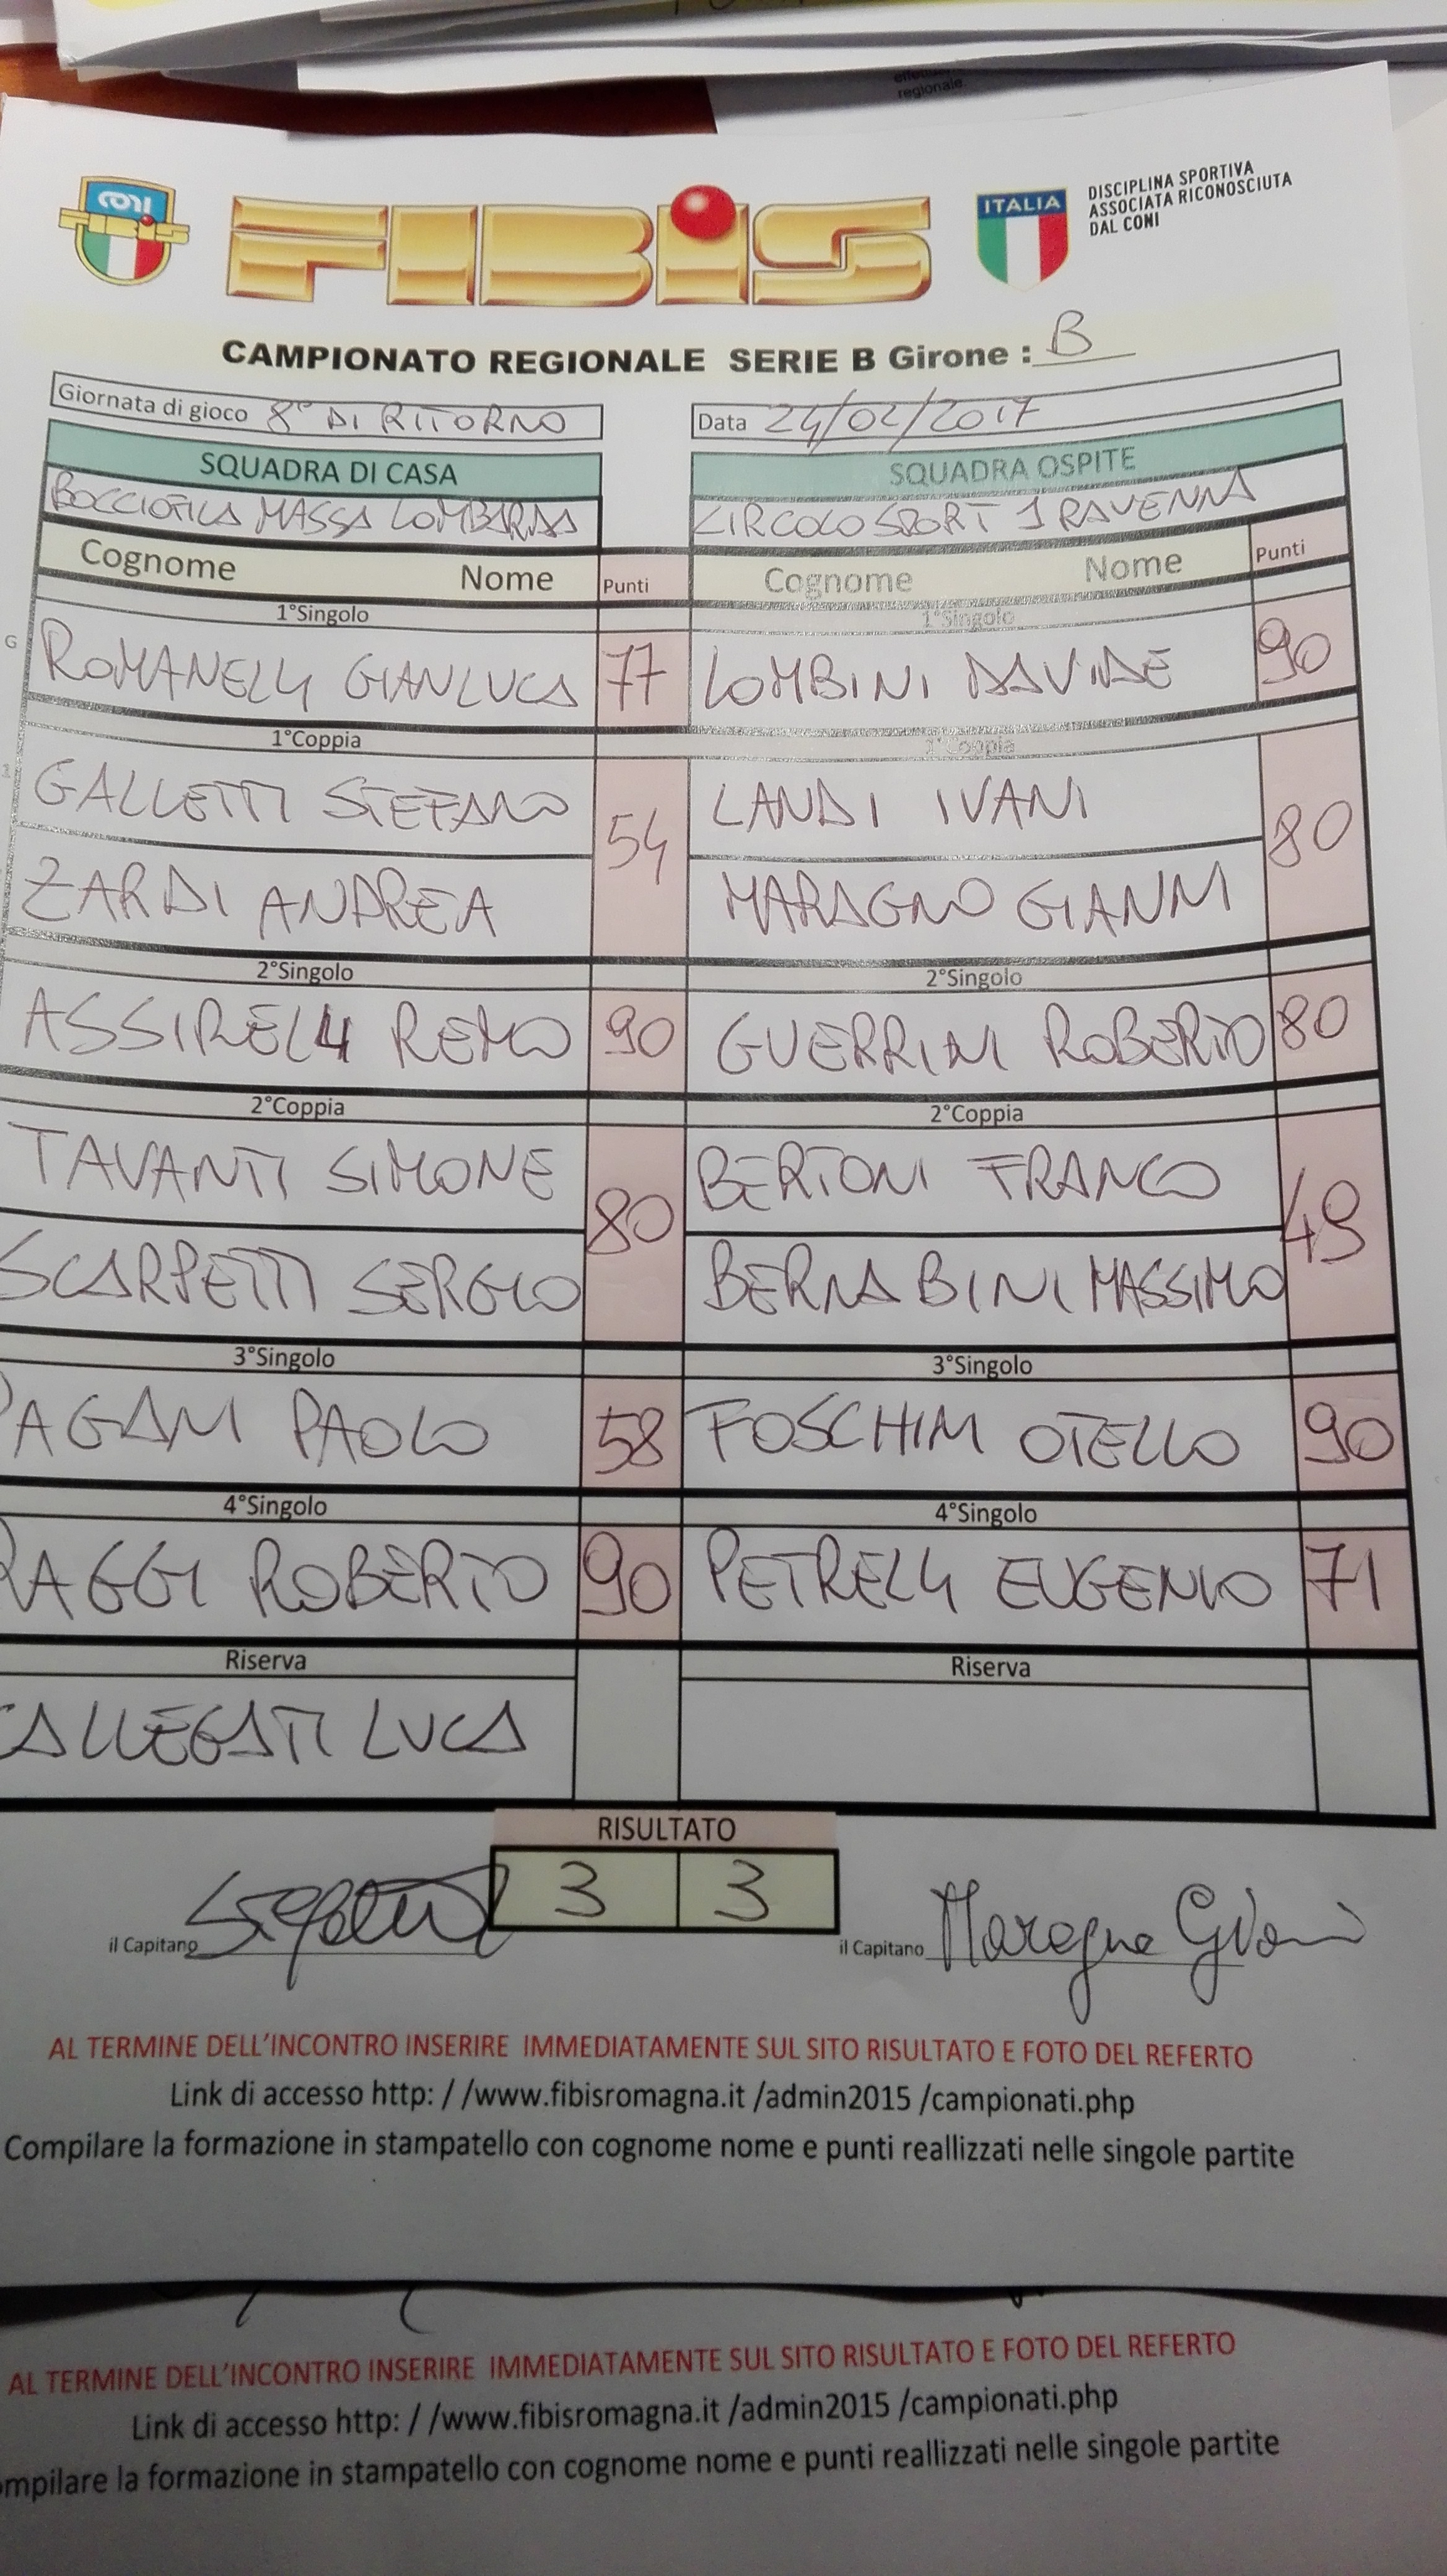 effettu
regionale
CONI
FIBIS
FIBIS
ITALIA
DISCIPLINA SPORTIVA
ASSOCIATA RICONOSCIUTA
DAL CONI
CAMPIONATO REGIONALE SERIE B Girone : B
Giornata di gioco 8° DI RITORNO Data 24/02/2017
SQUADRA DI CASA SQUADRA OSPITE
BOCCIOFILA MASSA LOMBARDA CIRCOLO SPORT 1 RAVENNA
Cognome Nome Punti Cognome Nome Punti
1°Singolo 1°Singolo
ROMANELLI GIANLUCA 77 LOMBINI DAVIDE 90
1°Coppia 1°Coppia
GALLETTI STEFANO 54 LANDI IVANI 80
ZARDI ANDREA MARAGNO GIANNI
2°Singolo 2°Singolo
ASSIRELLI REMO 90 GUERRINI ROBERTO 80
2°Coppia 2°Coppia
TAVANTI SIMONE 80 BERTONI FRANCO 49
SCARPETTI SERGIO BERNABINI MASSIMO
3°Singolo 3°Singolo
PAGANI PAOLO 58 FOSCHINI OTELLO 90
4°Singolo 4°Singolo
RAGGI ROBERTO 90 PETRELLI EUGENIO 71
Riserva Riserva
CALLEGATI LUCA
RISULTATO
3 3
il Capitano il Capitano Maragno Gianni
AL TERMINE DELL'INCONTRO INSERIRE IMMEDIATAMENTE SUL SITO RISULTATO E FOTO DEL REFERTO
Link di accesso http: / /www.fibisromagna.it /admin2015 /campionati.php
Compilare la formazione in stampatello con cognome nome e punti reallizzati nelle singole partite
AL TERMINE DELL'INCONTRO INSERIRE IMMEDIATAMENTE SUL SITO RISULTATO E FOTO DEL REFERTO
Link di accesso http: / /www.fibisromagna.it /admin2015 /campionati.php
ompilare la formazione in stampatello con cognome nome e punti reallizzati nelle singole partite